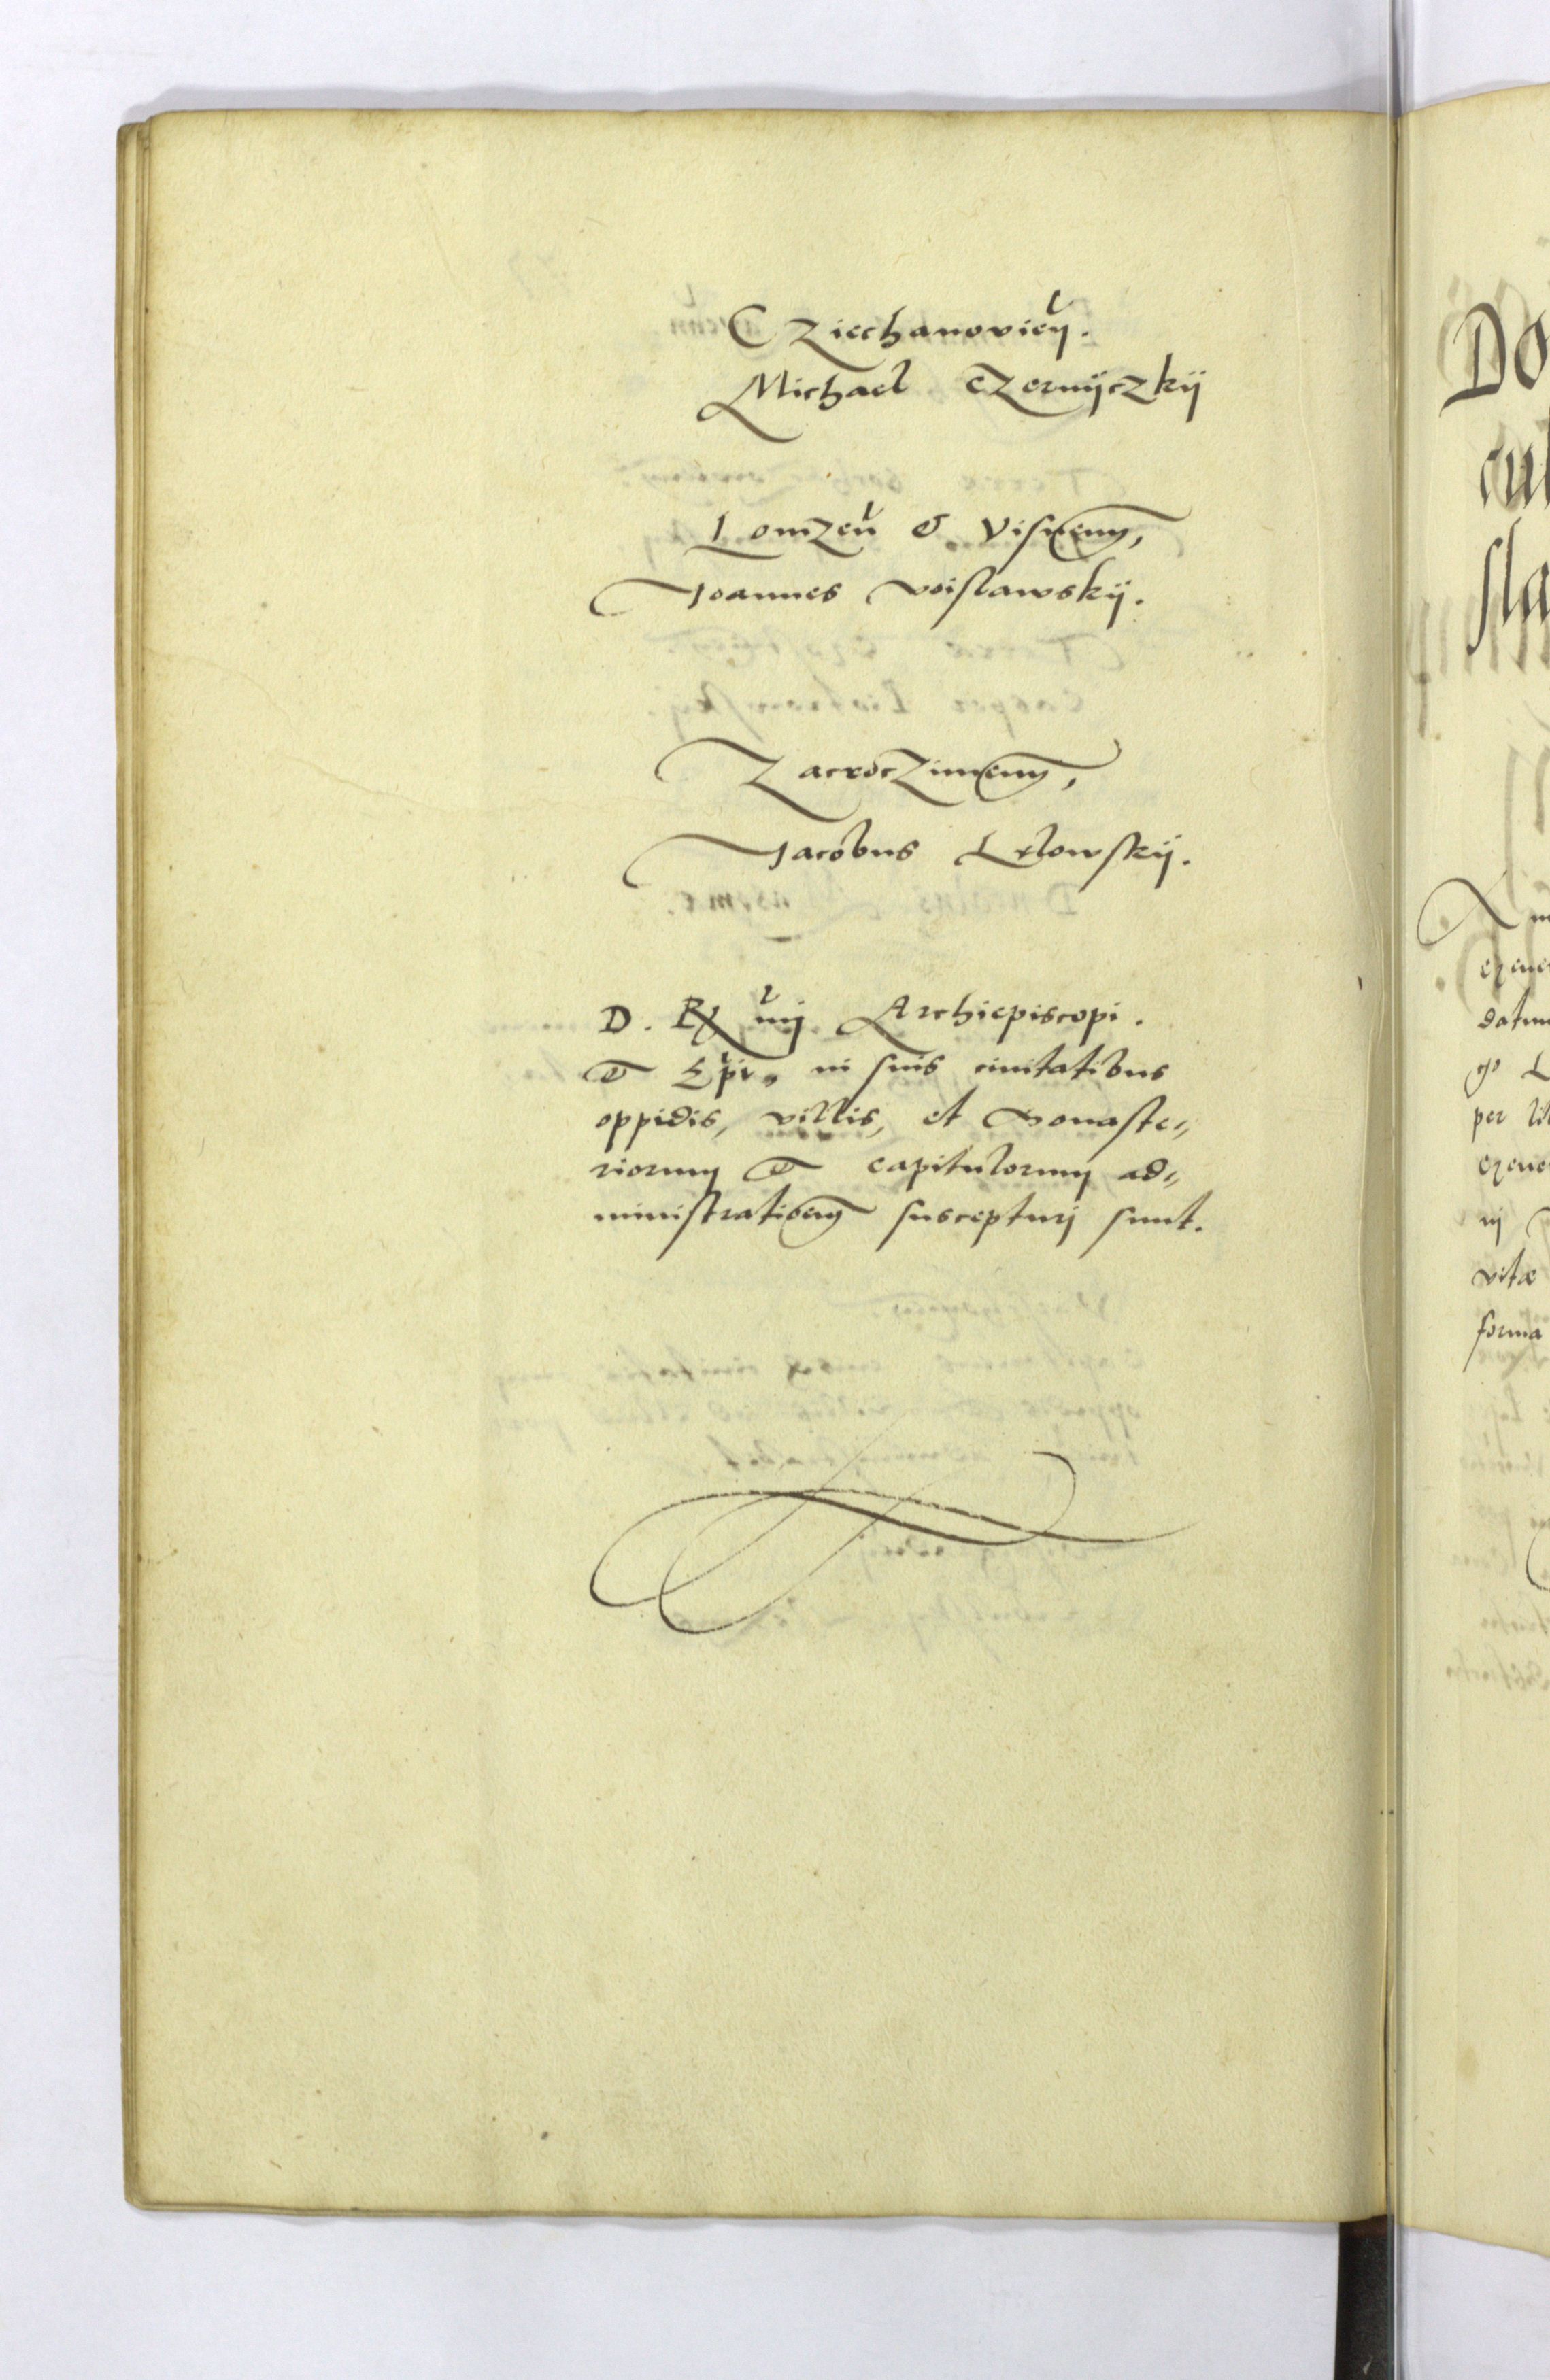 Cziechanovien.
Michael Czernyczkÿ
Lomzen & Visnen,
Joannes Voislawskÿ.
Zacroczimen,
Jacobus Lelowskÿ.
D. Rmi Archiepiscopi.
et Epi, in suis civitatibus
oppidis, villis, et Monaste„
riorum et capitulorum ad„
ministrationem suscepturi sunt.
DO
cul
sla
datum
per lit
vitæ
forma